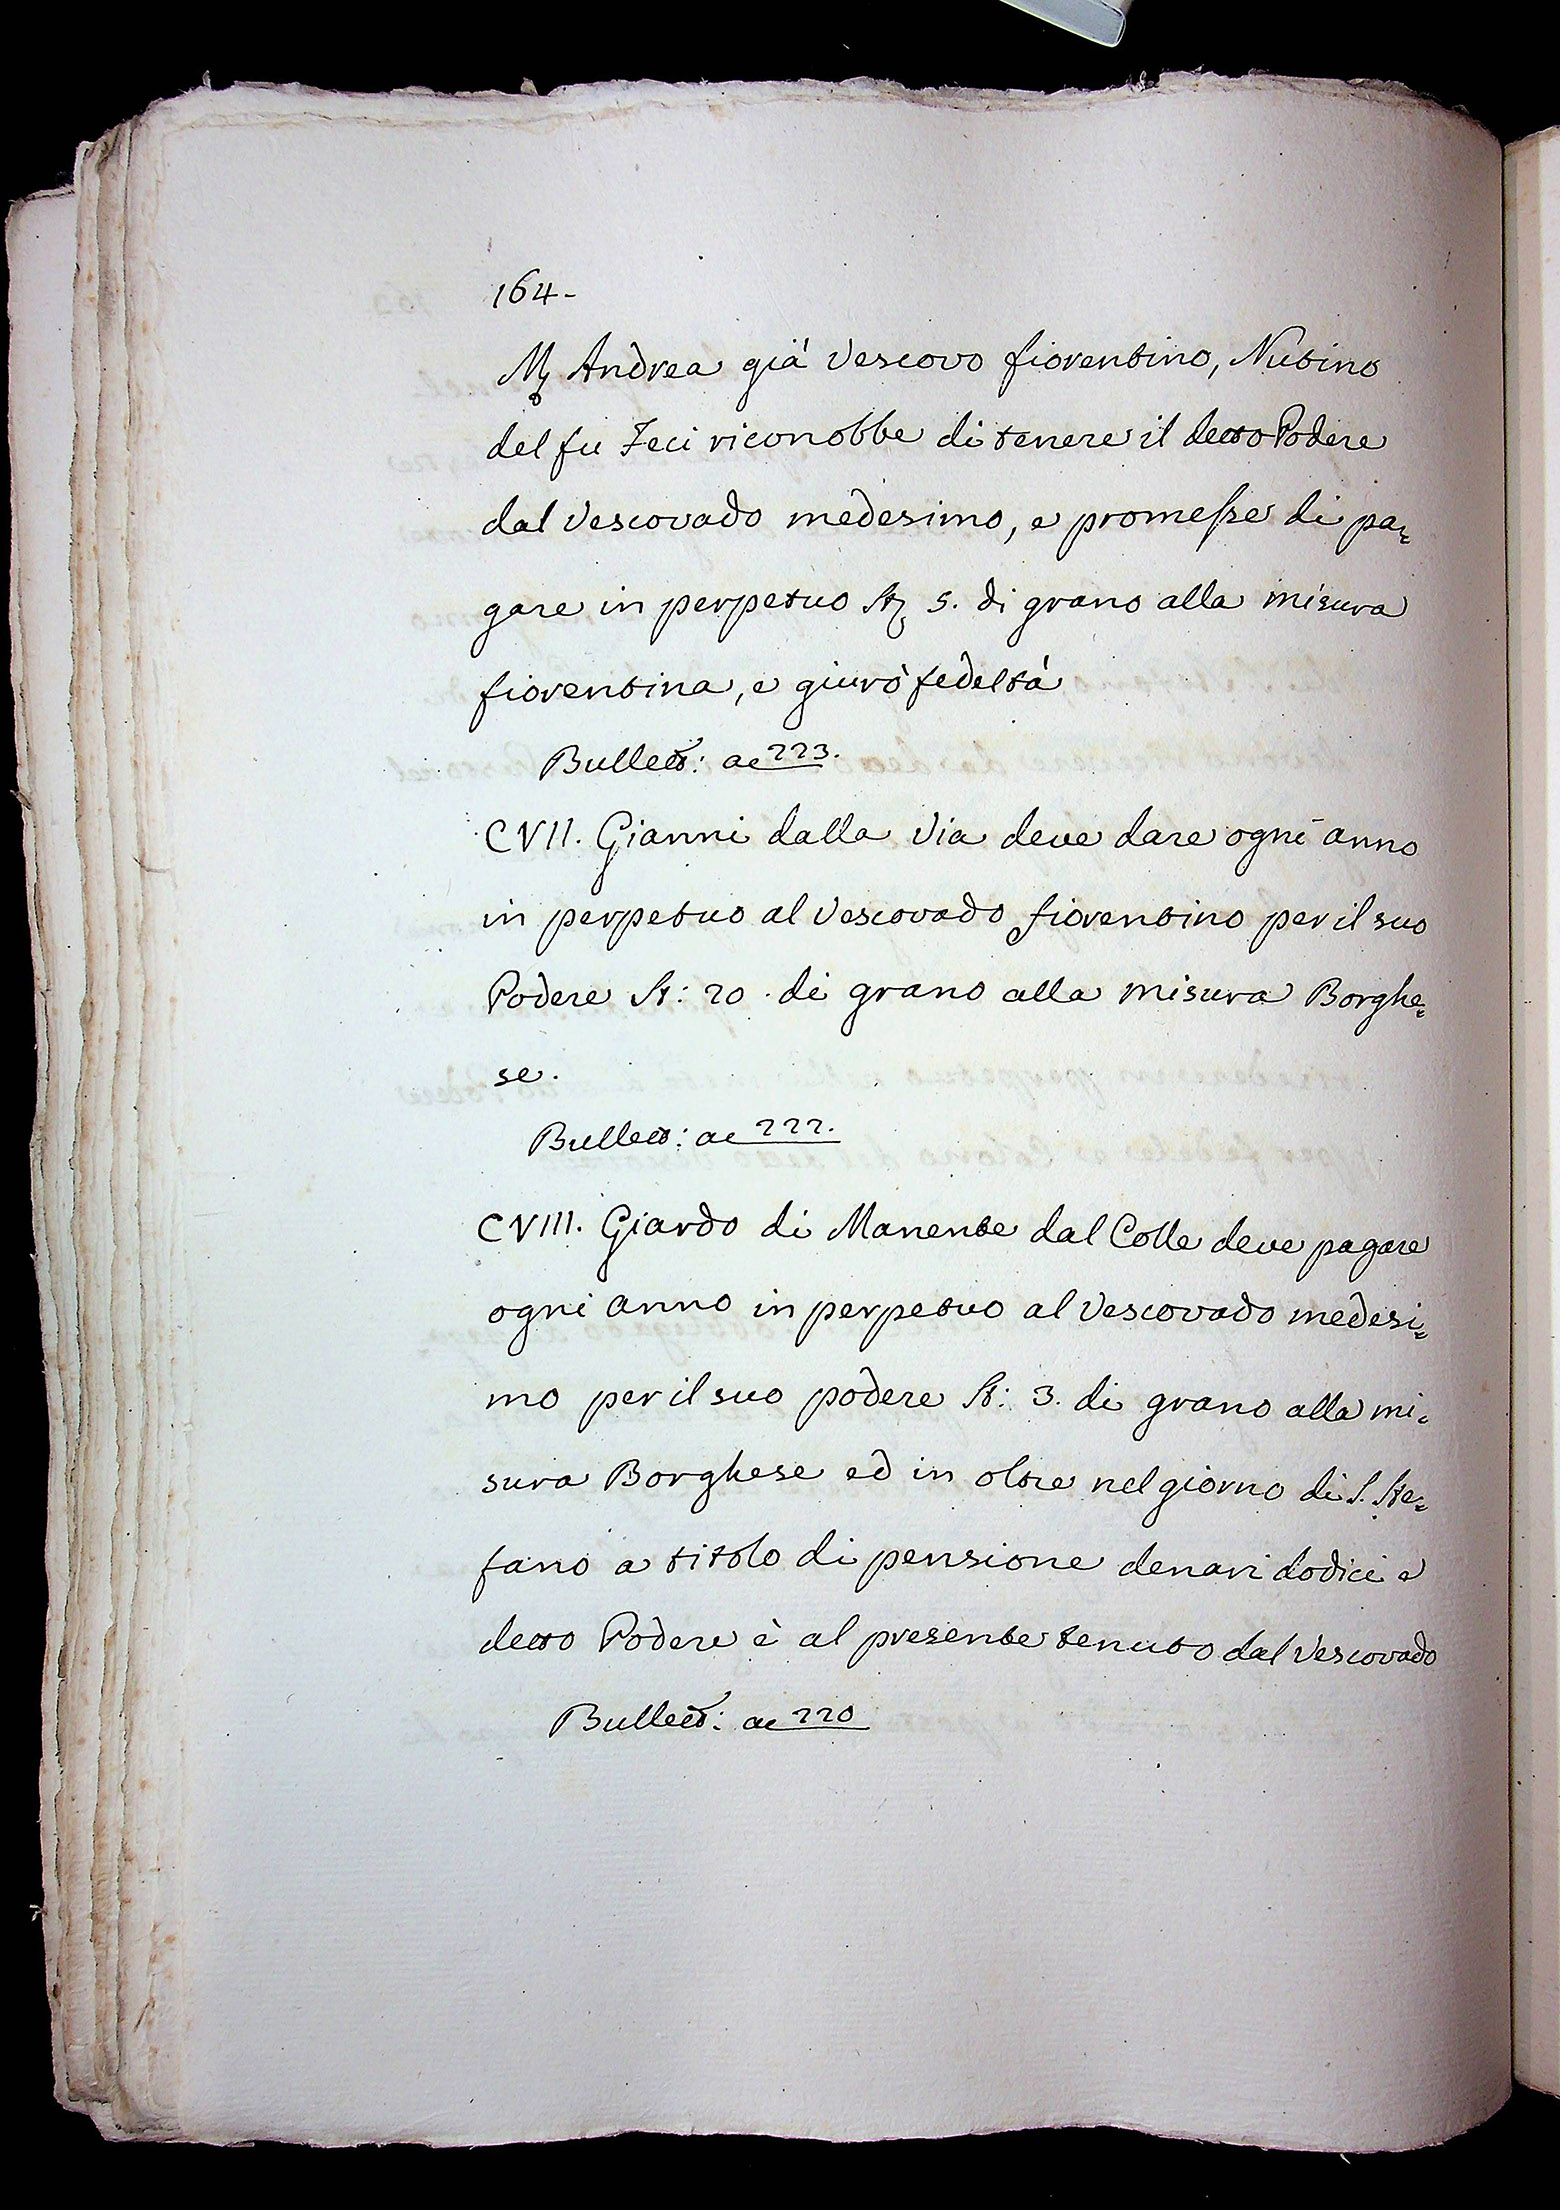 164.
Mr Andrea già Vescovo fiorentino, Nutino
del fu Feci riconobbe di tenere il detto Podere
dal Vescovado medesimo, e promesse di pa=
gare in perpetuo St 5. di grano alla misura
fiorentina, e giurò fedeltà
Bullett: ac 223.
CVII. Gianni dalla Via deve dare ogni anno
in perpetuo al Vescovado fiorentino per il suo
Podere St: 20. di grano alla misura Borghe=
se.
Bullett: ac 222.
CVIII. Giardo di Manente dal Colle deve pagare
ogni anno in perpetuo al Vescovado medesi=
mo per il suo podere St: 3. di grano alla mi=
sura Borghese ed in oltre nel giorno di S. Ste=
fano a titolo di pensione denari dodici e
detto Podere è al presente tenuto dal Vescovado
Bullett: ac 220